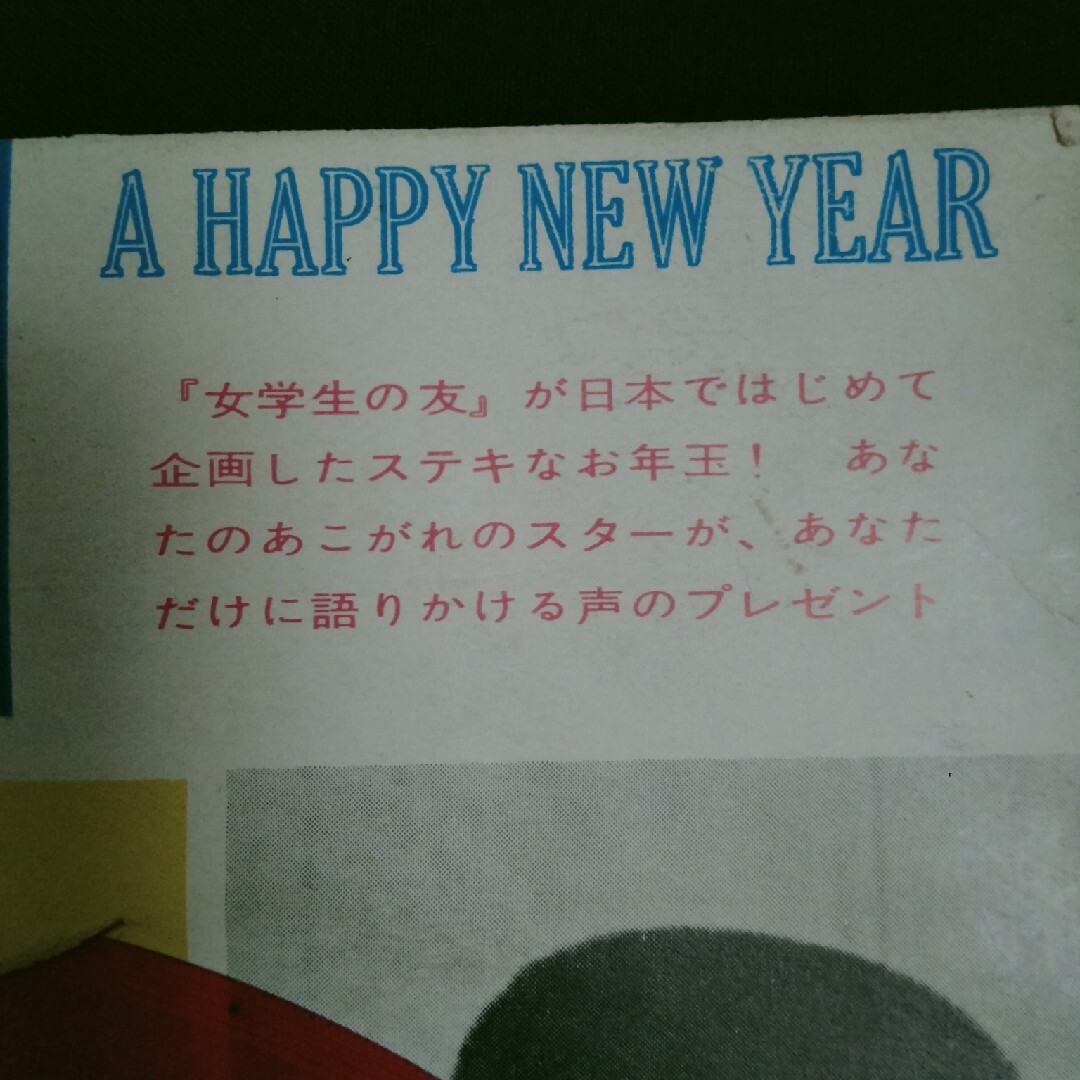 A HAPPY NEW YEAR
『女学生の友』が日本ではじめて
企画したステキなお年玉！　あな
たのあこがれのスターが、あなた
だけに語りかける声のプレゼント